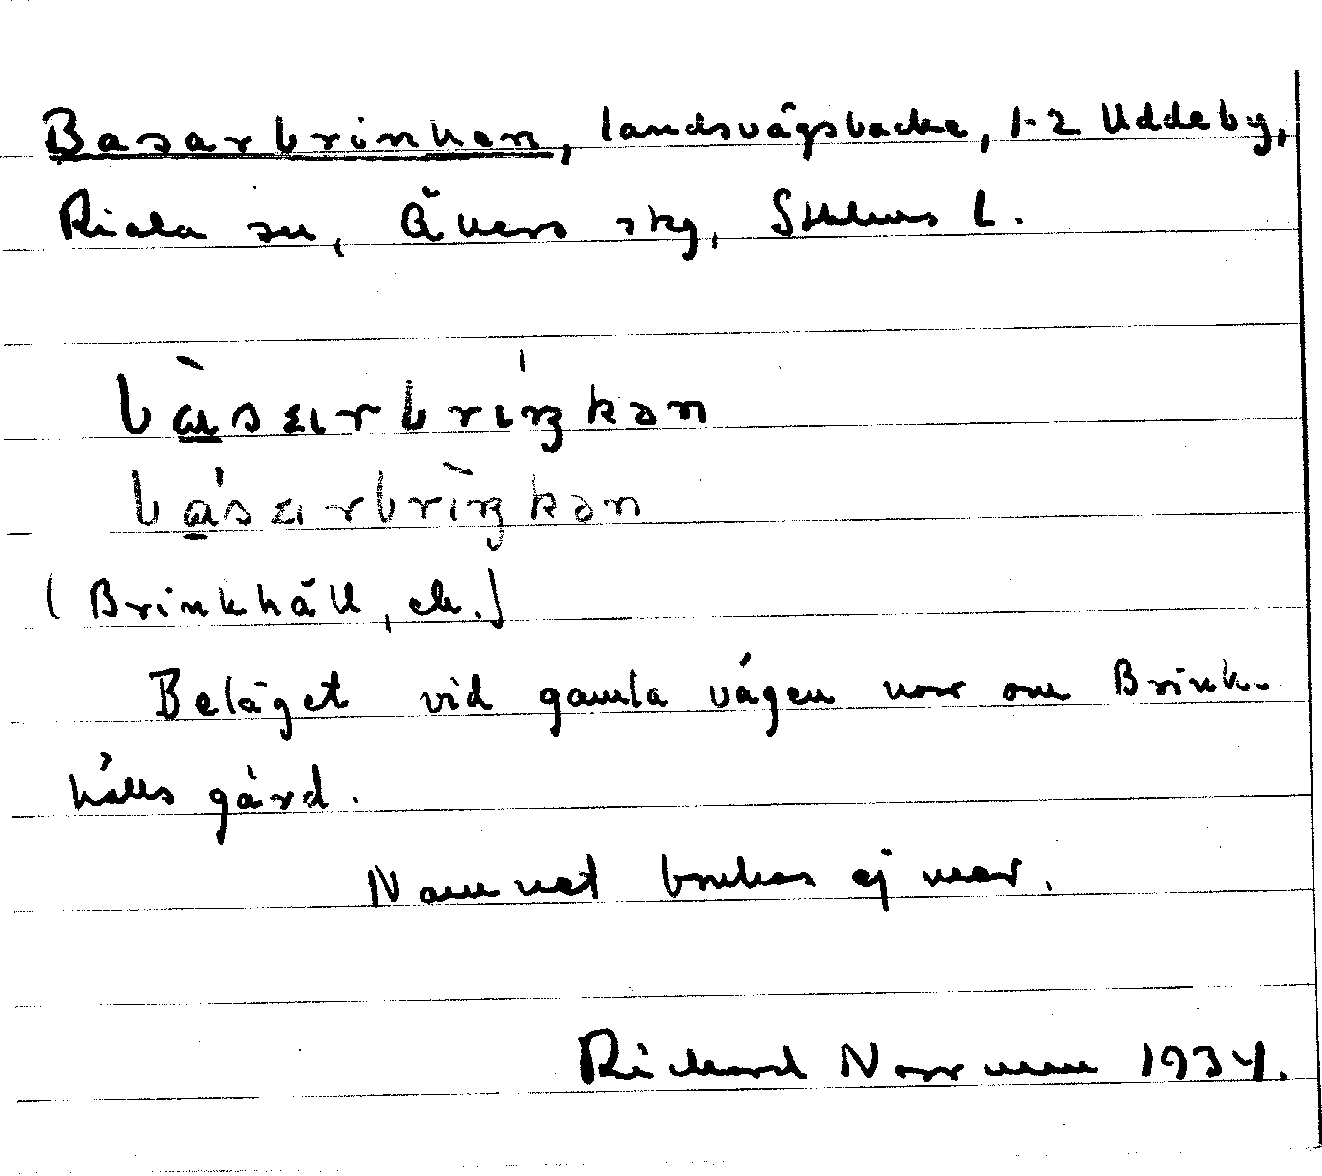 Basarbrinken, landsvägsbacke, 1-2 Uddeby,
Riala sn, Åkers skg, Sthlms L.
bàsarbrıŋkən
básarbrìŋkən
(Brinkhäll, ek.)
Beläget vid gamla vägen norr om Brink-
hälls gård.
Namnet brukas ej mer.
Richard Norrman 1934.